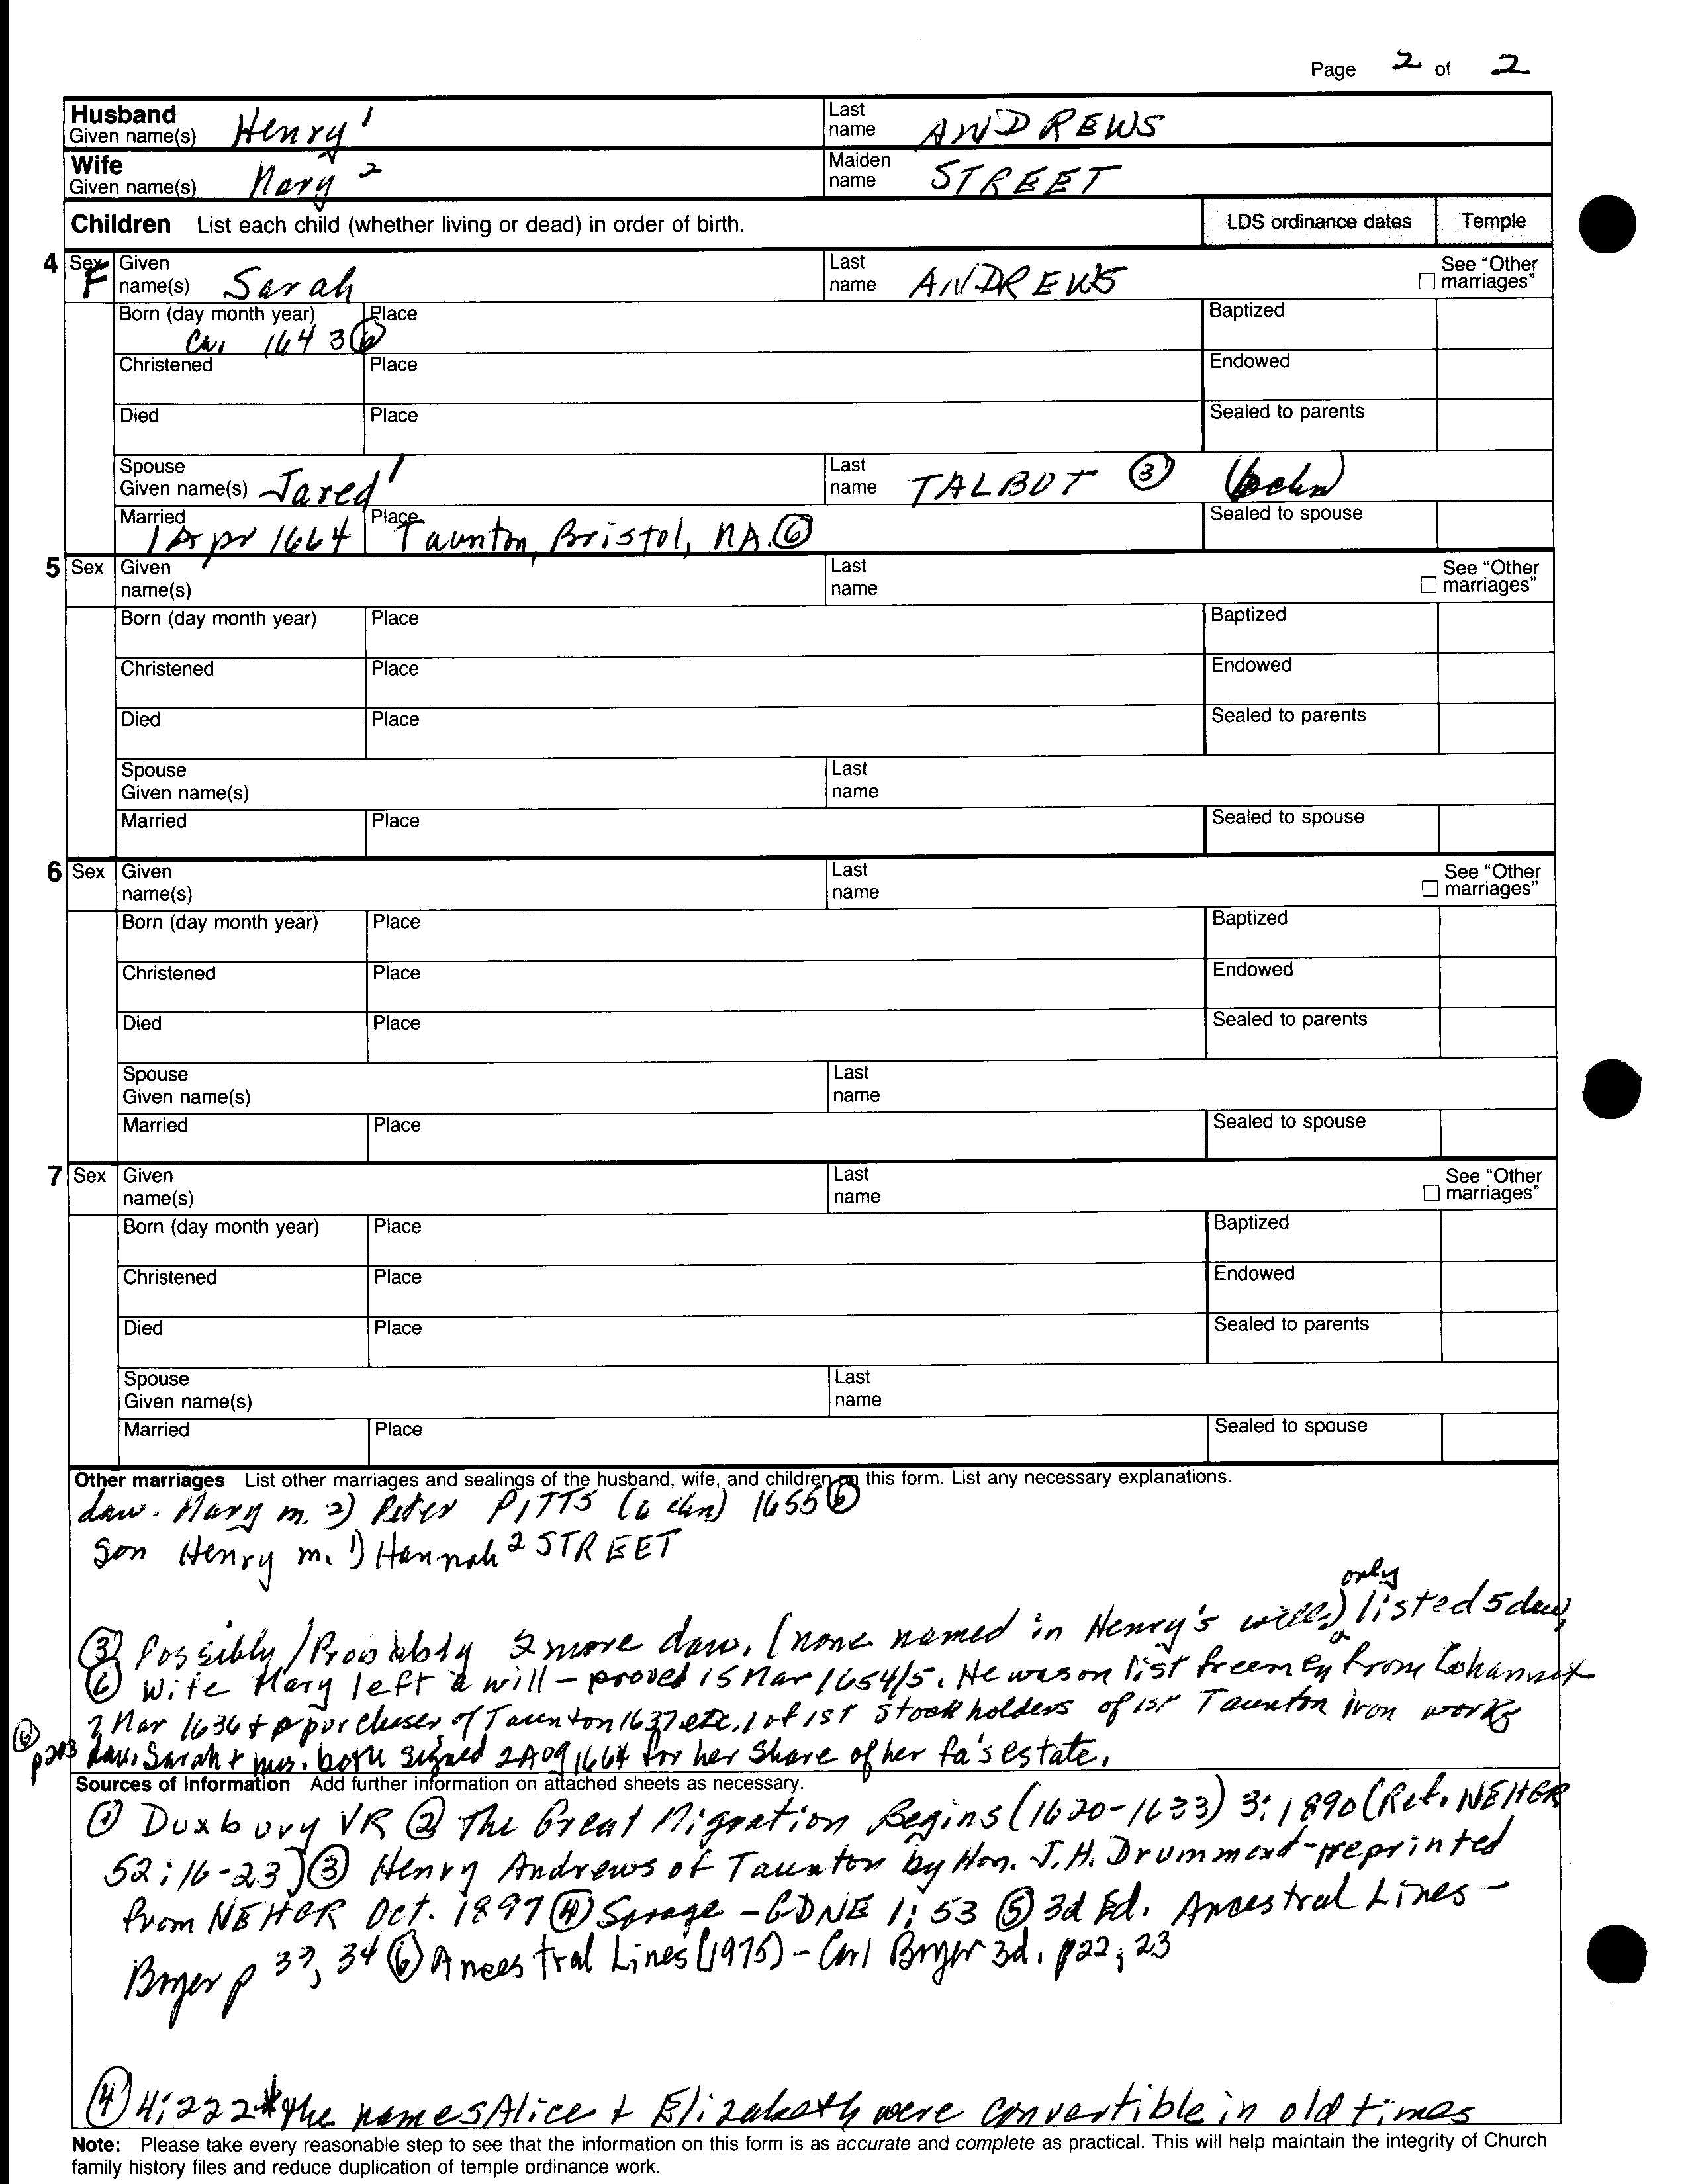 Page 2 of 2
Husband
Given name(s) Henry 1 Last name ANDREWS
Wife
Given name(s) Mary 2 Maiden name STREET
Children List each child (whether living or dead) in order of birth. LDS ordinance dates Temple
4 Sex F Given name(s) Sarah Last name ANDREWS See "Other marriages"
Born (day month year) Ca. 1643 ⑥ Place Baptized
Christened Place Endowed
Died Place Sealed to parents
Spouse
Given name(s) Jared 1 Last name TALBOT ③
Married 1 Apr 1664 Place Taunton, Bristol, MA. ⑥ Sealed to spouse
5 Sex Given name(s) Last name See "Other marriages"
Born (day month year) Place Baptized
Christened Place Endowed
Died Place Sealed to parents
Spouse
Given name(s) Last name
Married Place Sealed to spouse
6 Sex Given name(s) Last name See "Other marriages"
Born (day month year) Place Baptized
Christened Place Endowed
Died Place Sealed to parents
Spouse
Given name(s) Last name
Married Place Sealed to spouse
7 Sex Given name(s) Last name See "Other marriages"
Born (day month year) Place Baptized
Christened Place Endowed
Died Place Sealed to parents
Spouse
Given name(s) Last name
Married Place Sealed to spouse
Other marriages List other marriages and sealings of the husband, wife, and children on this form. List any necessary explanations.
dau. Mary m. 2) Peter PITTS (6 chn) 1655 ⑥
son Henry m. 1) Hannah 2 STREET
③ Possibly/Probably 2 more dau. (none named in Henry's will) only listed 5 dau,
⑥ Wife Mary left a will - proved 15 Mar 1654/5. He was on list freemen from Cohannet
7 Mar 1636 + purchaser of Taunton 1637 etc, 1 of 1st stockholders of 1st Taunton iron works
⑥ p203 dau. Sarah + hus. both signed 2 Aug 1664 for her share of her fa's estate.
Sources of information Add further information on attached sheets as necessary.
① Duxbury VR ② The Great Migration Begins (1620-1633) 3:1890 (Ref. NEHGR
52:16-23) ③ Henry Andrews of Taunton by Hon. J.H. Drummond - reprinted
from NEHGR Oct. 1897 ④ Savage - GDNE 1:53 ⑤ 3d Ed. Ancestral Lines -
Boyer p 33, 34 ⑥ Ancestral Lines (1975) - Carl Boyer 3d. p22, 23
④ 4:222 * The names Alice + Elizabeth were convertible in old times
Note: Please take every reasonable step to see that the information on this form is as accurate and complete as practical. This will help maintain the integrity of Church
family history files and reduce duplication of temple ordinance work.